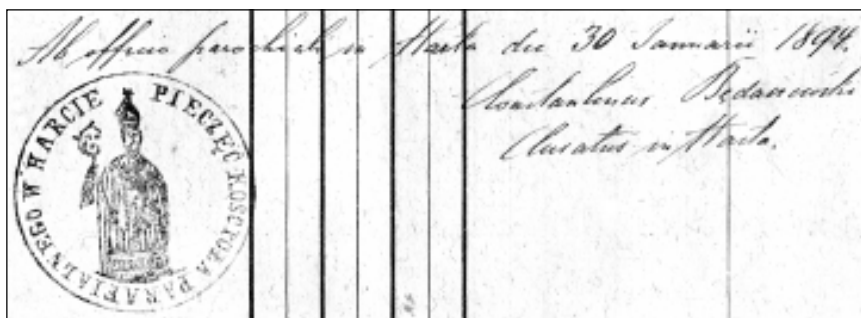 Ab officio parochiali in Harta die 30 Januarii 1894.
Constantinus
Curatus in Harta.
PIECZĘĆ KOŚCIOŁA PARAFIALNEGO W HARCIE